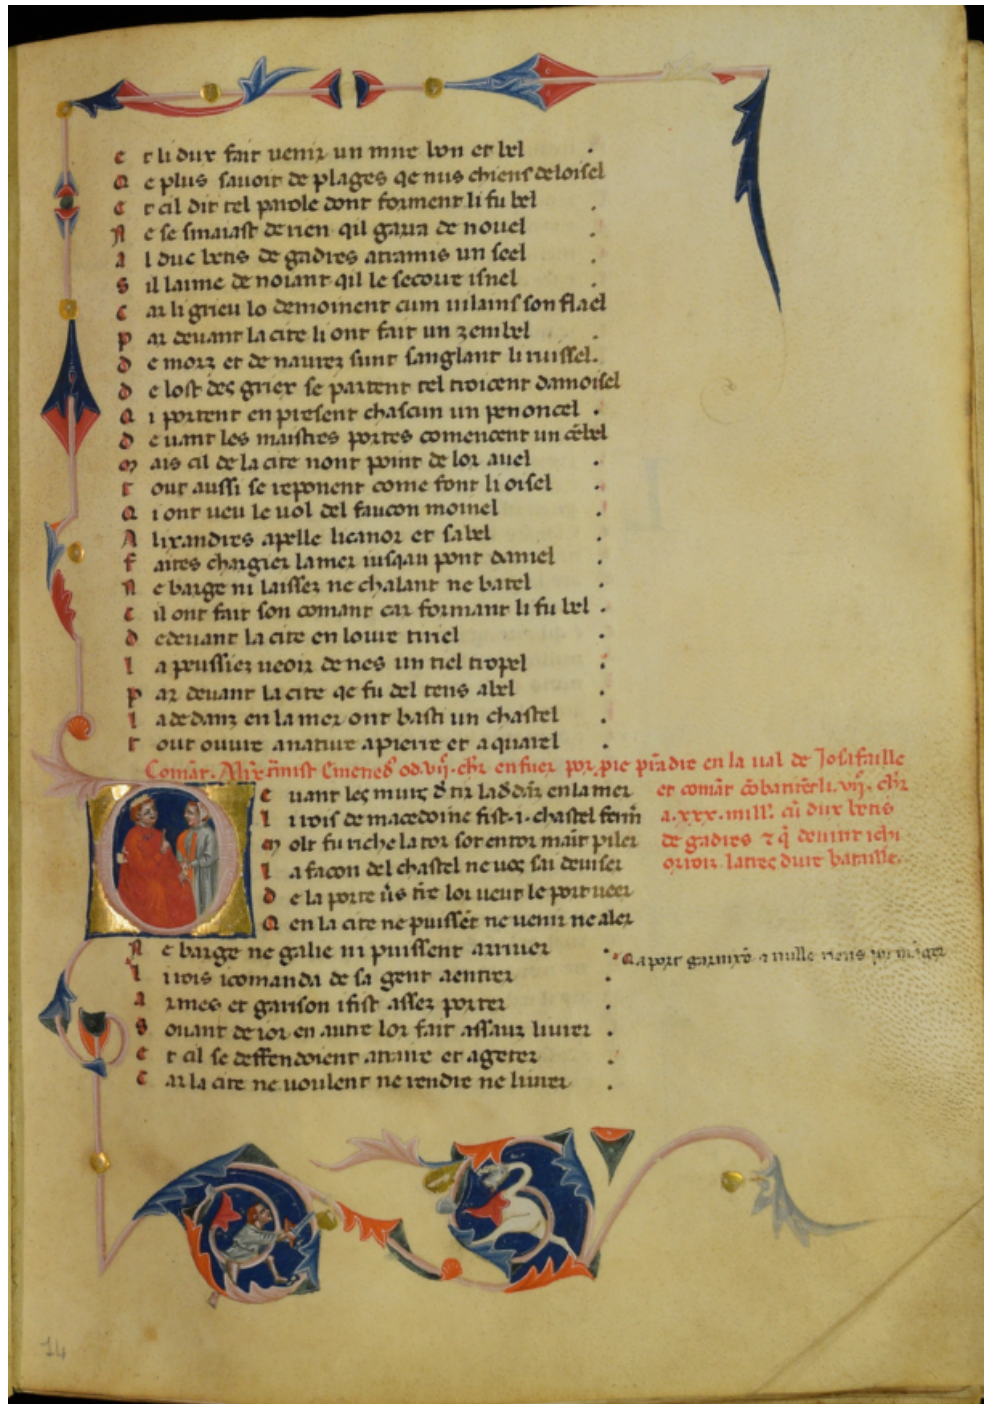 E t li dux fait uenir un mue bon et bel
Q e plus sauoit de plages qe nus chiens de loisel
E t cil dit tel parole dont forment li fu bel
N e se smaiast de rien qil gaura de nouel
A l duc betis de gadres atramis un seel
S il laime de noiant qil le secoure isnel
C ar li grieu lo demoinent cum uilains son flael
P ar deuant la cite li ont fait un zembel
D e morz et de naurez sunt sanglant li ruissel
D e lost des griex se partent tel troicent damoisel
Q i portent en present chascun un penoncel
D euant les maistres portes comencent un cẽbel
M ais cil de la cite nont point de lor auel
T out aussi se reponent come font li oisel
Q i ont ueu le uol del faucon moinel
A lixandres apelle licanor et sabel
F aites chargier la mer iusqau pont daniel
N e barge ni laissez ne chalant ne batel
C il ont fait son comant car formant li fu bel
D edeuant la cite en loure tiriel
L a peussiez ueoir de nes un tiel tropel
P ar deuant la cite qe fu del tens abel
L a dedanz en la mer ont basti un chastel
T out ouure a nature a pierre et a quarel
Comãt Alix̃ mist Emened͛ od .vij. chr̃ en fuer por p̃ie p̃ndre en la ual de Josafaille
et comãt cõbatirẽt li .vij. chr̃
a .xxx. mill. cũ dux betis
de gadres ⁊ q̃ deuint ichi
orroiz la tres dure bataille.
D euant les murs de tir la dedãz en la mer
L i rois de macedoine fist .i. chastel fermer
M olt fu riche la tor sor en tor mãit piler
L a façon del chastel ne uos sai deuiser
D e la porte ũs tire lor ueut le port ueer
Q en la cite ne puissẽt ne uenir ne aler
N e barge ne galie ni puissent arriuer
Q a port
L i rois icomanda de sa gent aentrer
A rmes et garison i fist assez porter
S ouant de ior en autre lor fait assaux liurer
E t cil se deffendoient a traire et a geter
C ar la cite ne uoulent ne rendre ne liurer
14